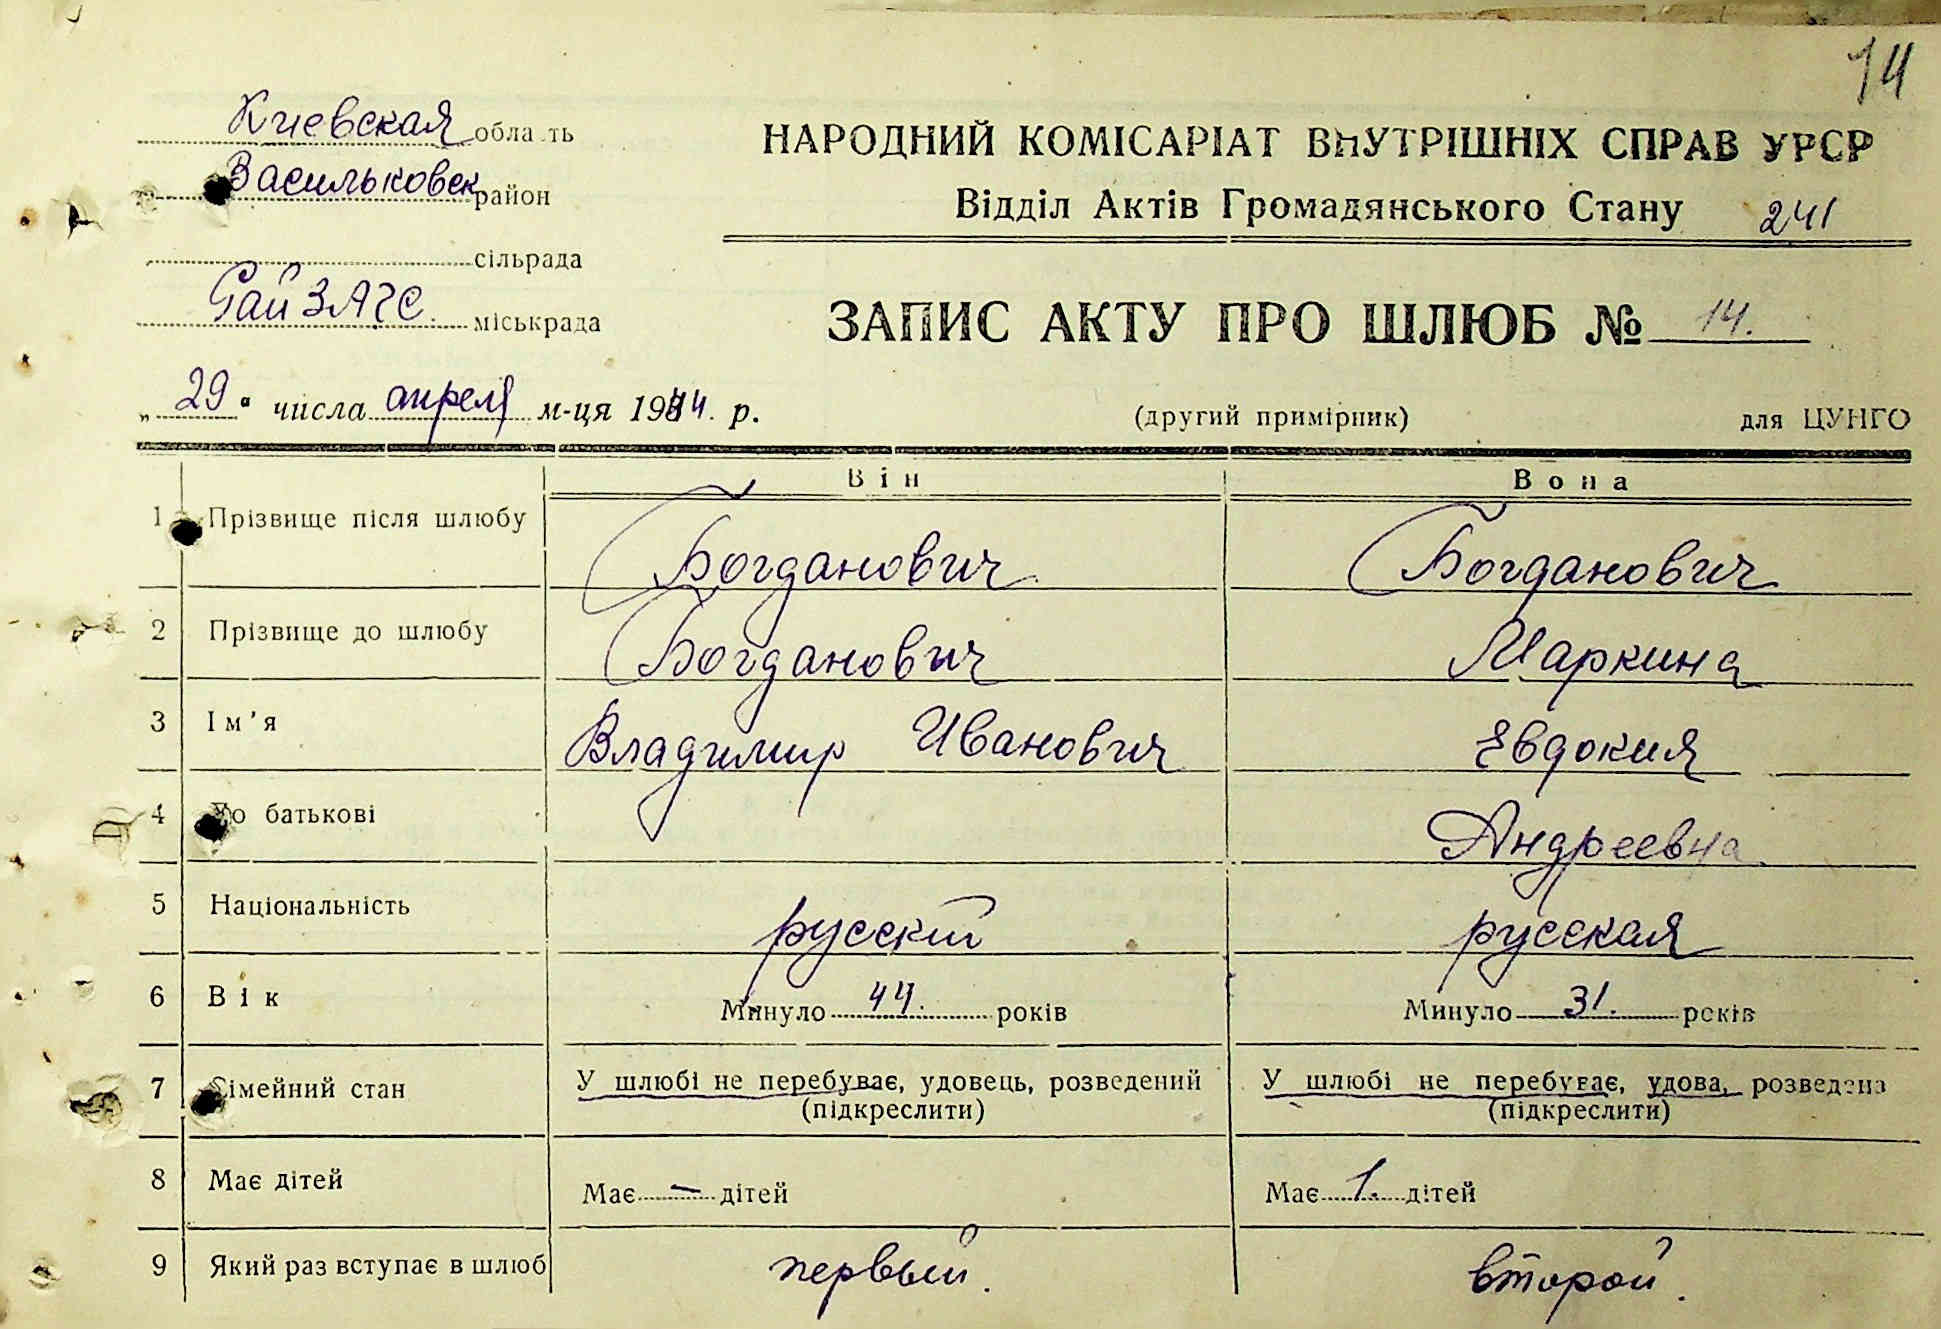 14
Киевская область
Васильковск район
сільрада
РайЗАГС. міськрада
НАРОДНИЙ КОМІСАРІАТ ВНУТРІШНІХ СПРАВ УРСР
Відділ Актів Громадянського Стану 241
ЗАПИС АКТУ ПРО ШЛЮБ № 14.
„29“ числа апреля м-ця 1944. р.
(другий примірник) для ЦУНГО
Він Вона
1 Прізвище після шлюбу Богданович Богданович
2 Прізвище до шлюбу Богданович Маркина
3 Ім’я Владимир Иванович Евдокия
4 По батькові Андреевна
5 Національність русский русская
6 Вік Минуло 44. років Минуло 31. років
7 Сімейний стан У шлюбі не перебуває, удовець, розведений У шлюбі не перебуває, удова, розведена
(підкреслити) (підкреслити)
8 Має дітей Має - дітей Має 1. дітей
9 Який раз вступає в шлюб первый. второй.